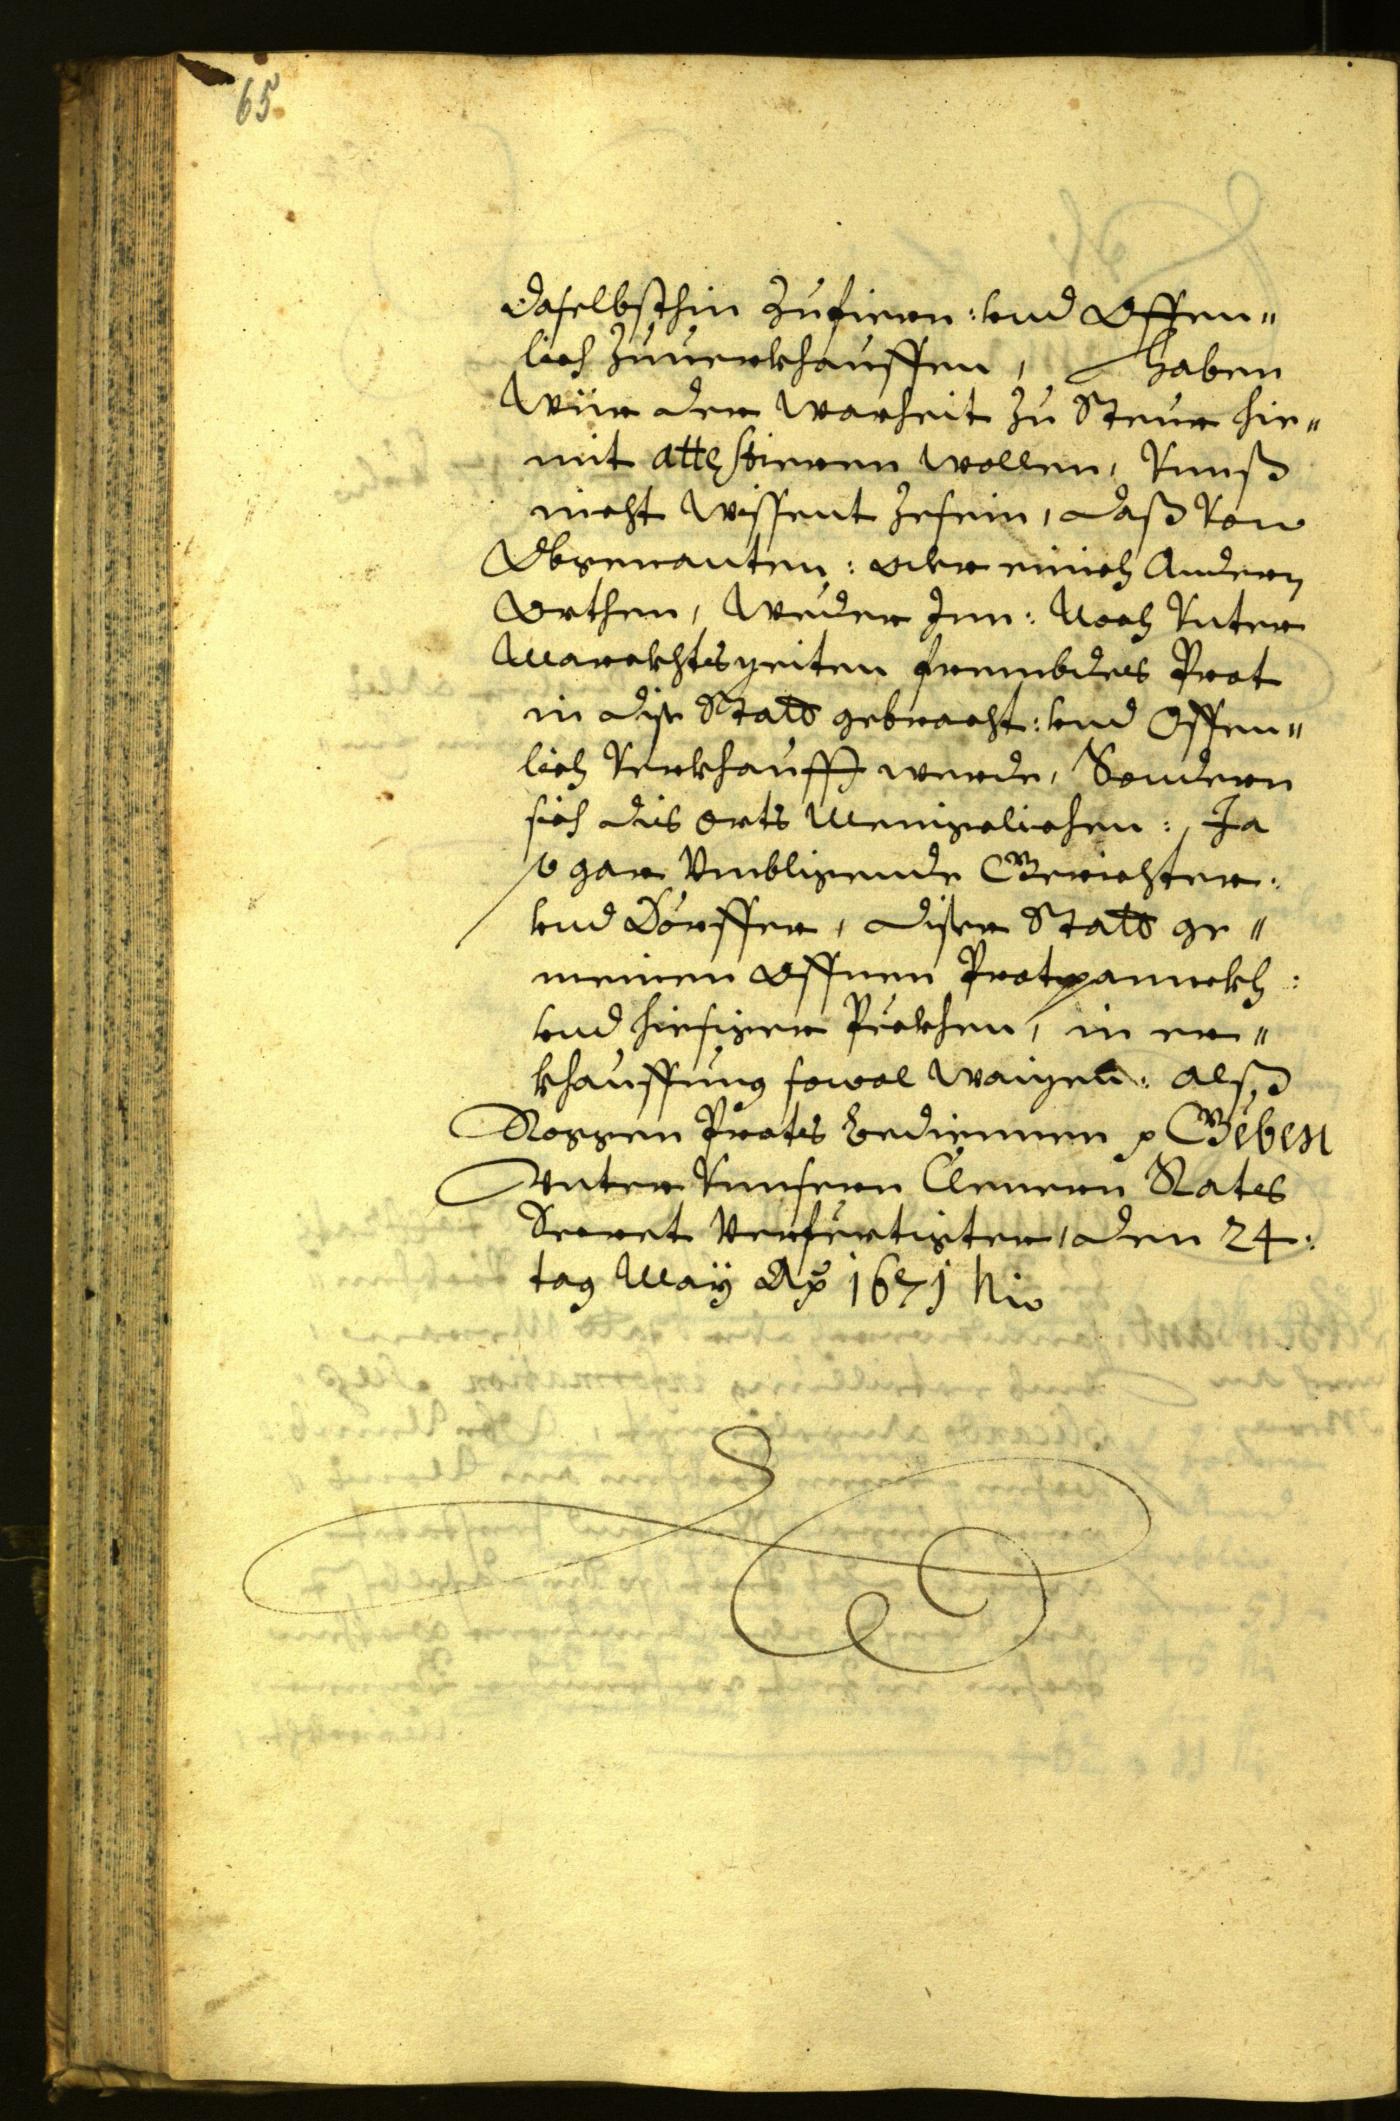 65
daselbsthin zufiern: vnd Offen"
lich zuuerkhauffen, haben
Wür der Warheit zu Steur hie"
mit attestieren wollen, Vnnß
nicht wissent zesein, daß von
Obgenanten: oder einich Andern
Orthen, weder Inn: Noch Vnter
Marckhtszeiten frembdes Prot
in dise Statt gebracht: vnd Offen"
lich verkhaufft werde, Sondern
sich dis orts Menigelichen: Ja
so gar Vmbligende Gerichter:
vnd Dörffer, diser Statt ge"
meinen offnen Protpannckh:
vnd hiesiger Peckhen, in er"
khauffung sowol Waizen: alß
Roggen Prots bedienen p Geben
Vnter Vnnsern Clenern Rats
Secret Verfertigter, den 24:
tag May Ao 1671